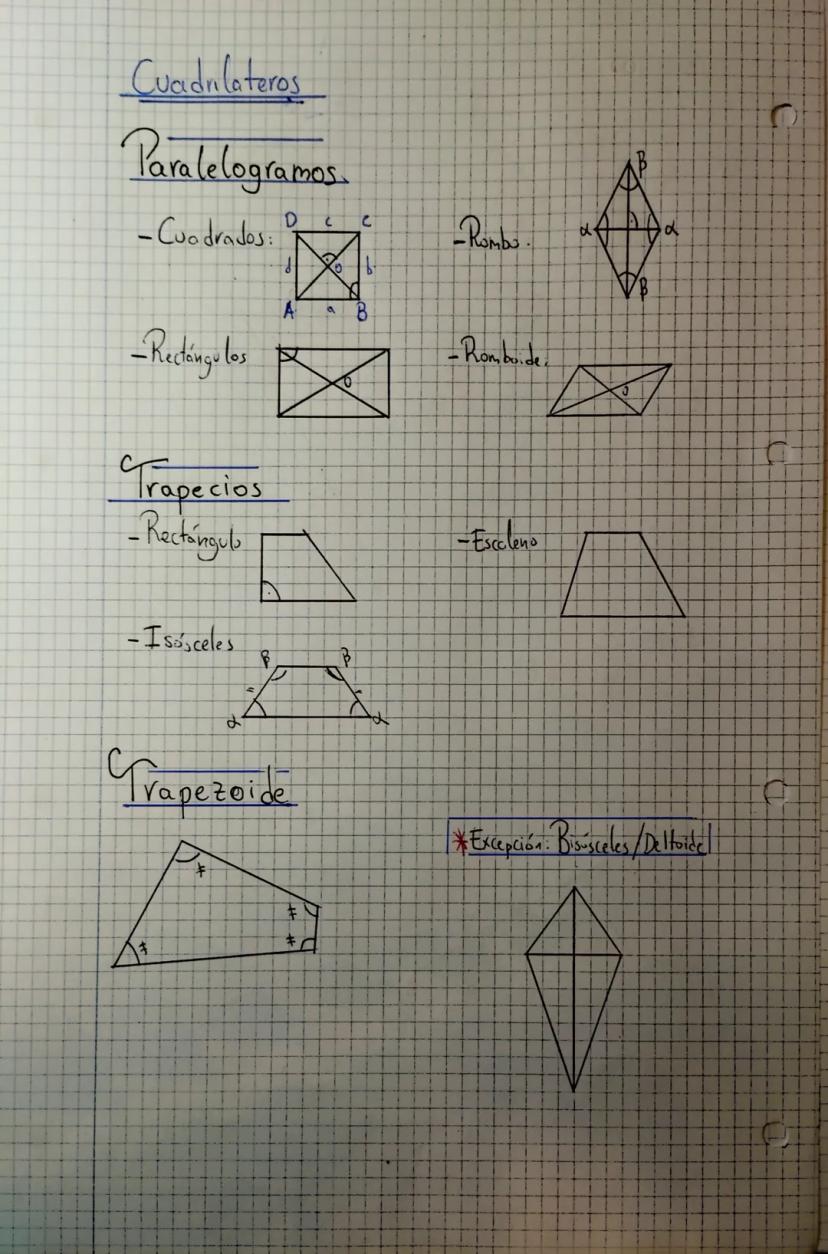 Cuadriláteros
Paralelogramos
- Cuadrados:
D c C
d o b
A a B
- Rombo.
β
α α
β
- Rectángulos
o
- Romboide.
o
Trapecios
- Rectángulo
- Escaleno
- Isósceles
β β
= =
α α
Trapezoide
≠
≠
≠
≠
* Excepción: Bisósceles/Deltoide